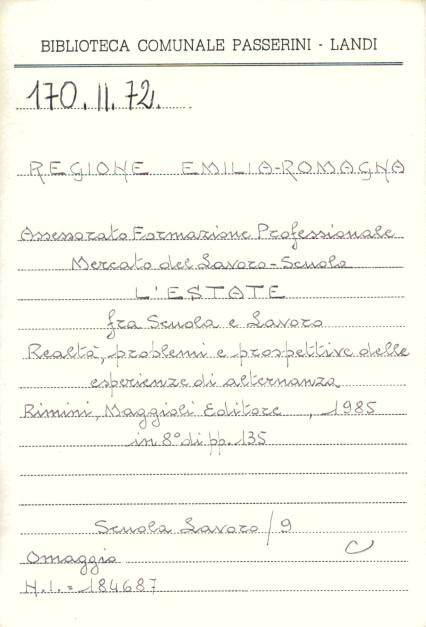 BIBLIOTECA COMUNALE PASSERINI - LANDI
170.II.72.
REGIONE EMILIA-ROMAGNA
Assessorato Formazione Professionale
Mercato del Lavoro-Scuola
L'ESTATE
fra Scuola e Lavoro
Realtà, problemi e prospettive delle
esperienze di alternanza
Rimini, Maggioli Editore , 1985
in 8° di pp. 135
Scuola Lavoro / 9
Omaggio
N.I. = 184687